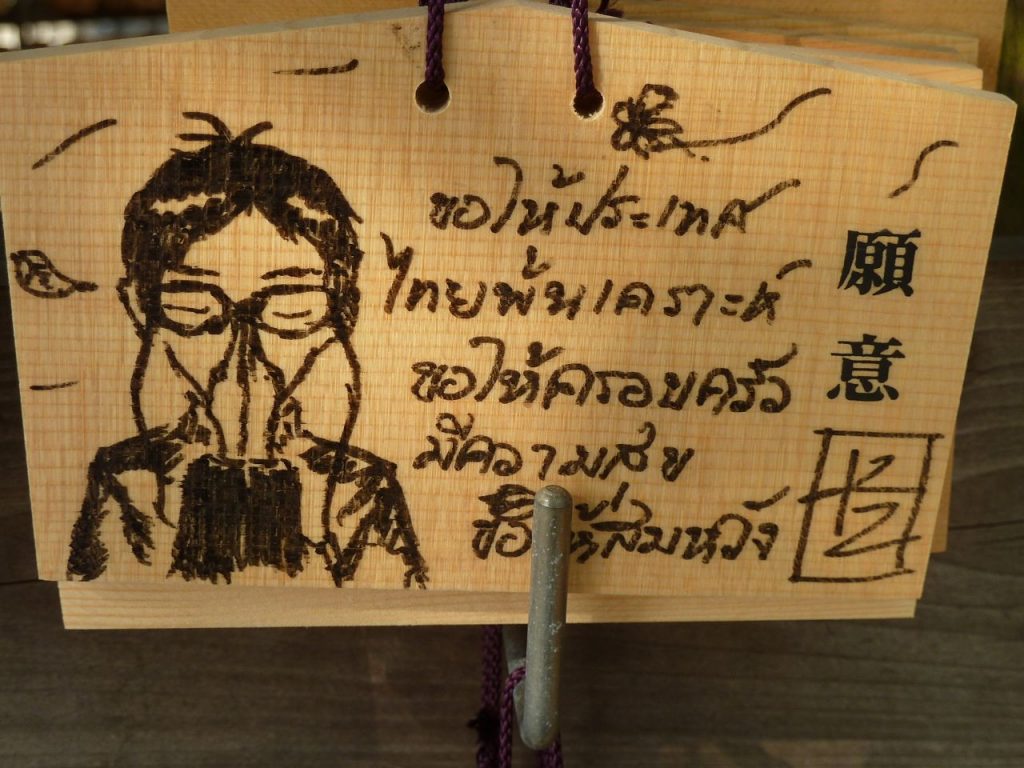 ขอให้ประเทศ
ไทยพ้นเคราะห์
ขอให้ครอบครัว
มีความสุข
ขอให้สมหวัง
願意